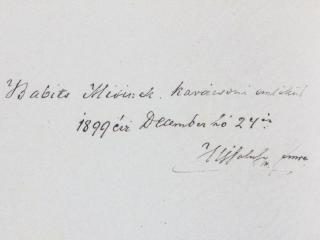 Babits Misinek. Karácsoni emlékül
1899 évi December hó 24 én
Imre